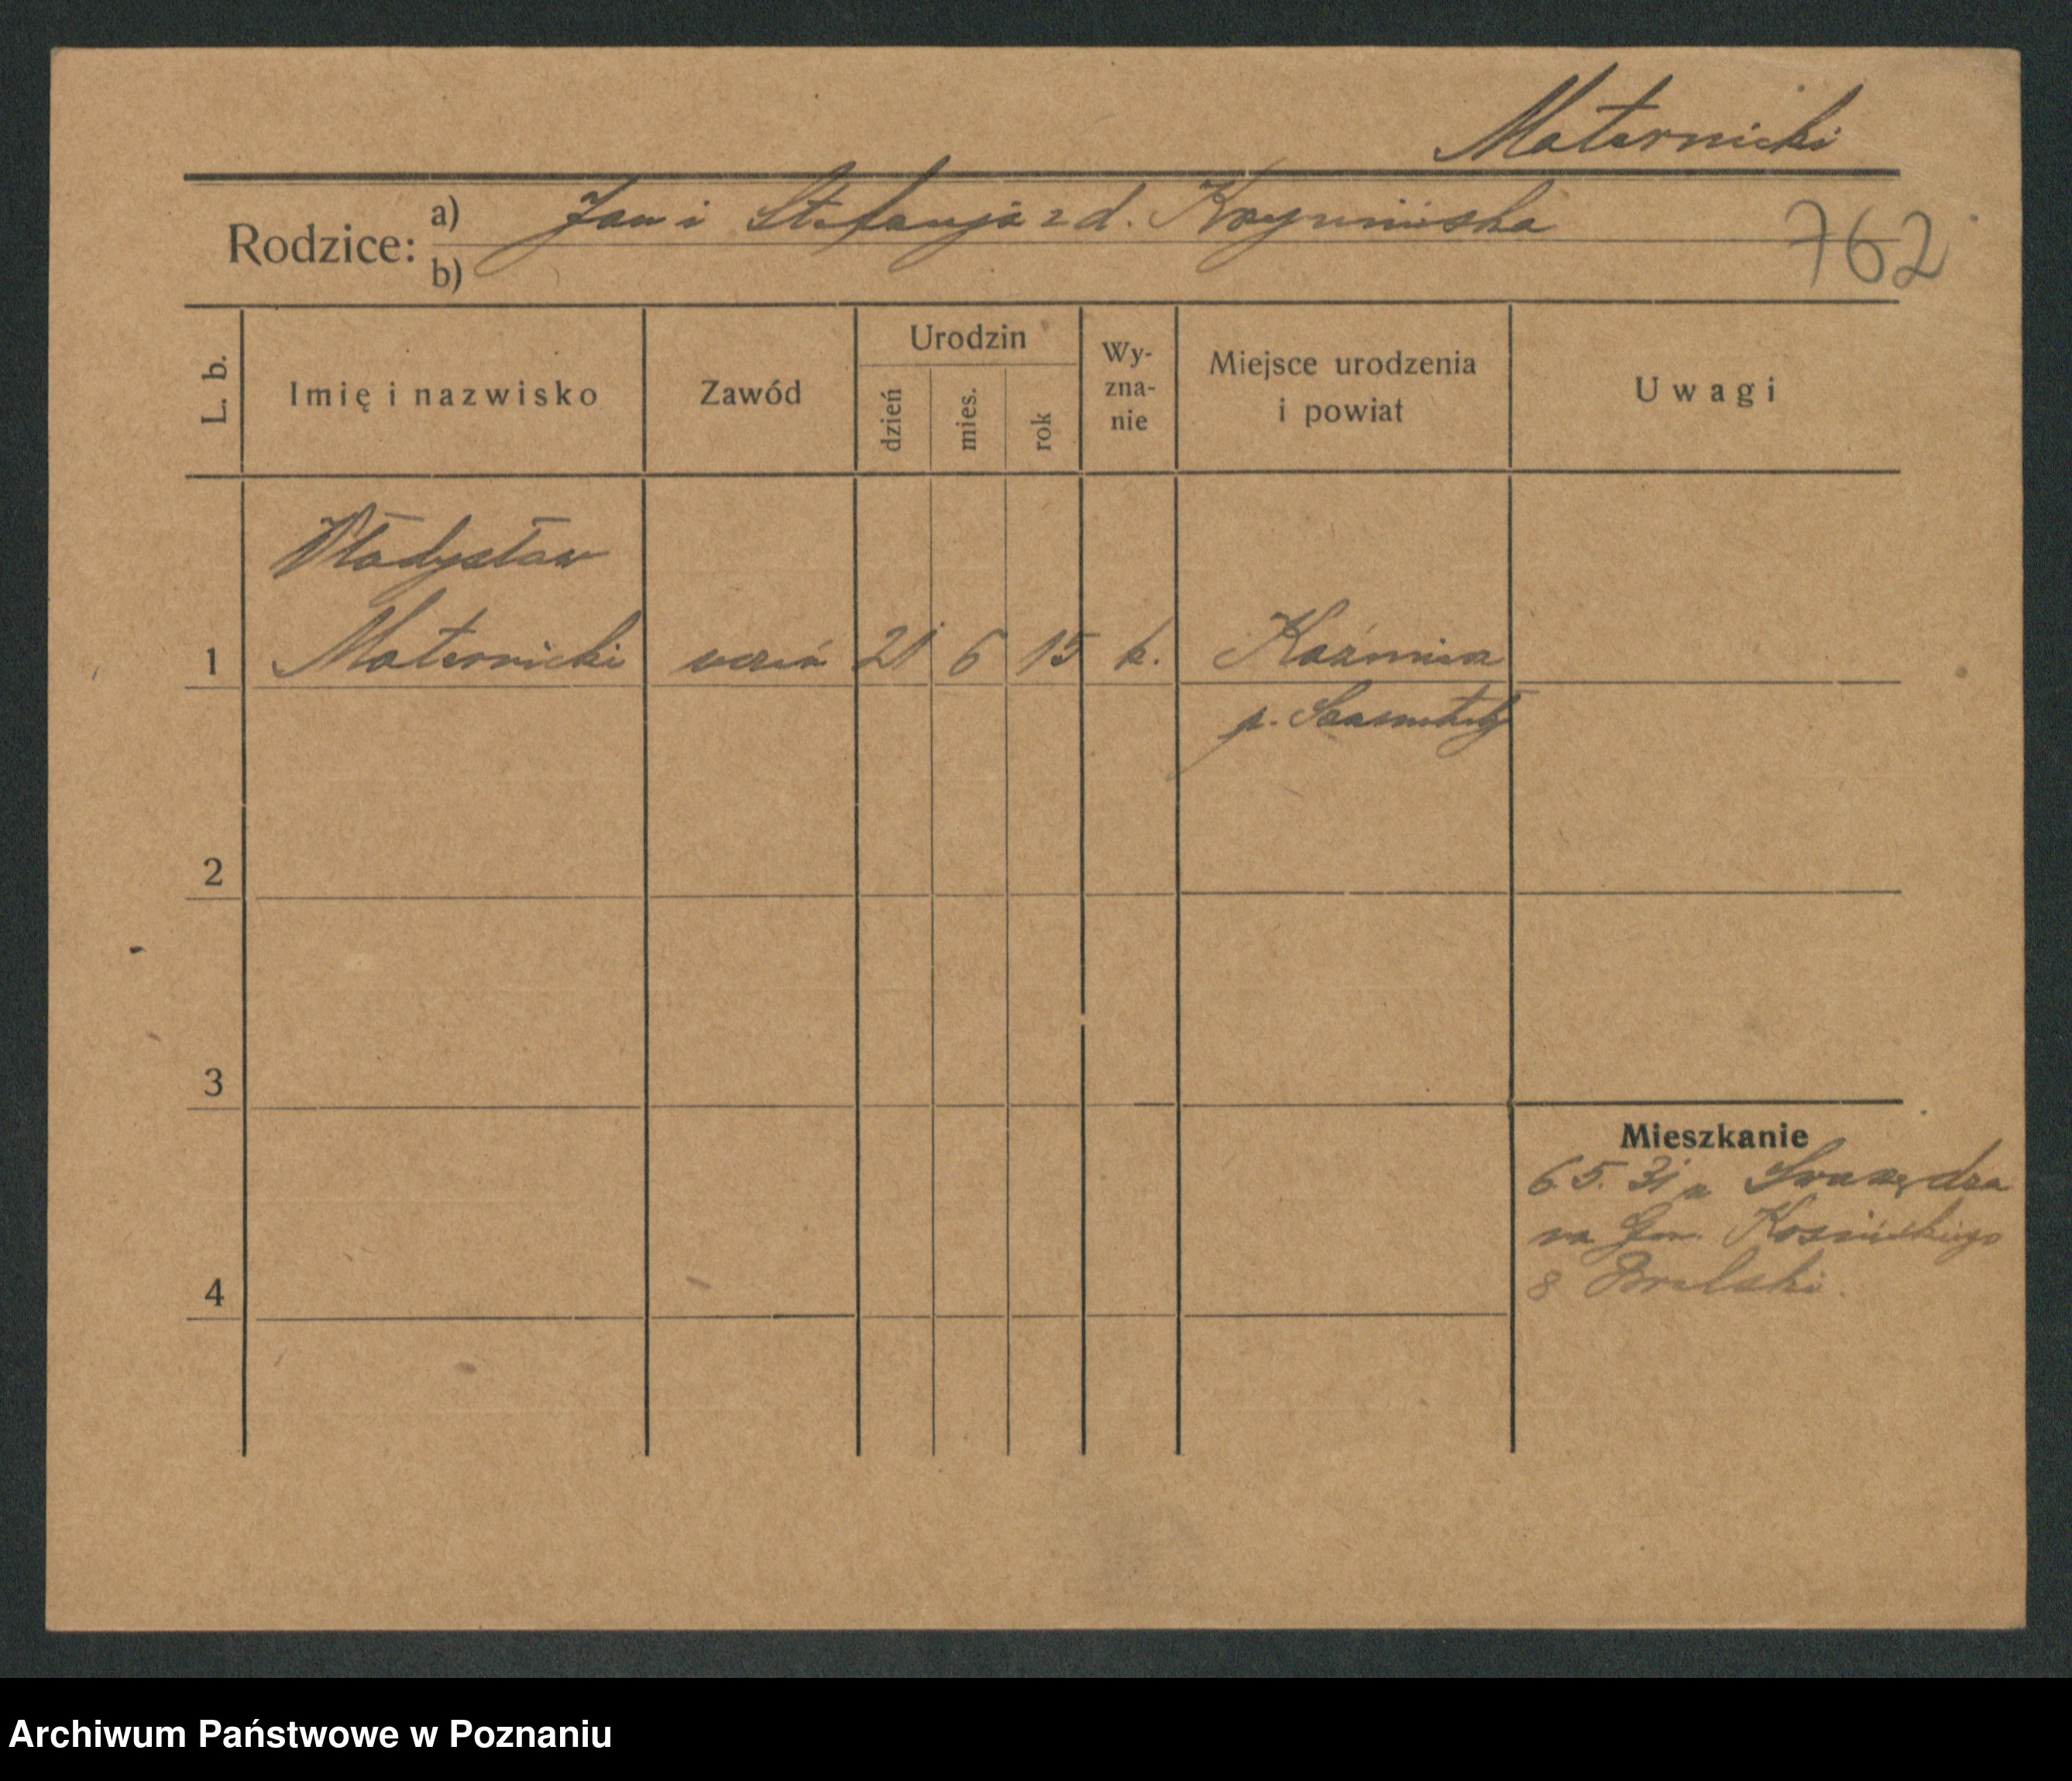 Maternicki
Rodzice: a) Jan i Stefanja z d.
b)
762
L. b.
Imię i nazwisko
Zawód
Urodzin
dzień
mies.
rok
Wy-
zna-
nie
Miejsce urodzenia
i powiat
Uwagi
Władysław
1 Maternicki uczeń 21 6 15 k. Kaźmierz
p. Szamotuły
2
3
Mieszkanie
6 5. 31 z Swarzędza
na Gen. Kosińskiego
8
4
Archiwum Państwowe w Poznaniu